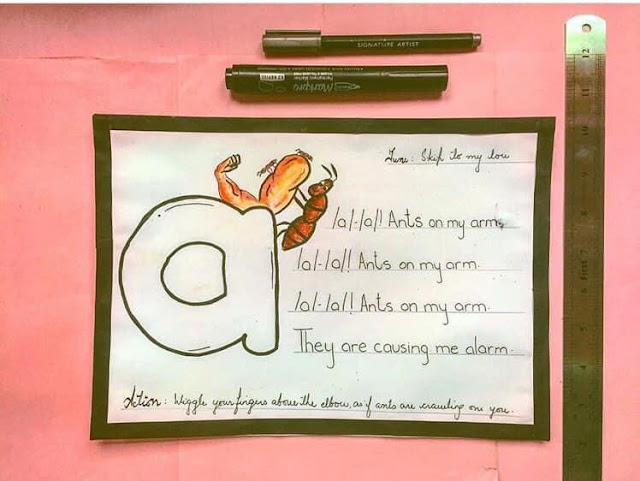 SIGNATURE ARTIST
Markpro
Permanent Marker
Tune: Skip to my lou
a
/a/-/a/! Ants on my arm,
/a/-/a/! Ants on my arm.
/a/-/a/! Ants on my arm.
They are causing me alarm.
Action: Wiggle your fingers above the elbow, as if ants are crawling one you.
12
11
10
9
8
7
6
5